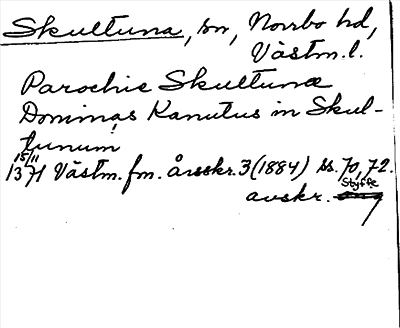 Skultuna, sn, Norrbo hd,
Västm. l.
Parochie Skultunæ
Dominus Kanutus in Skul-
tunum
15/11
1371 Västm. fm. årsskr. 3 (1884) ss. 70, 72.
Styffe
avskr.